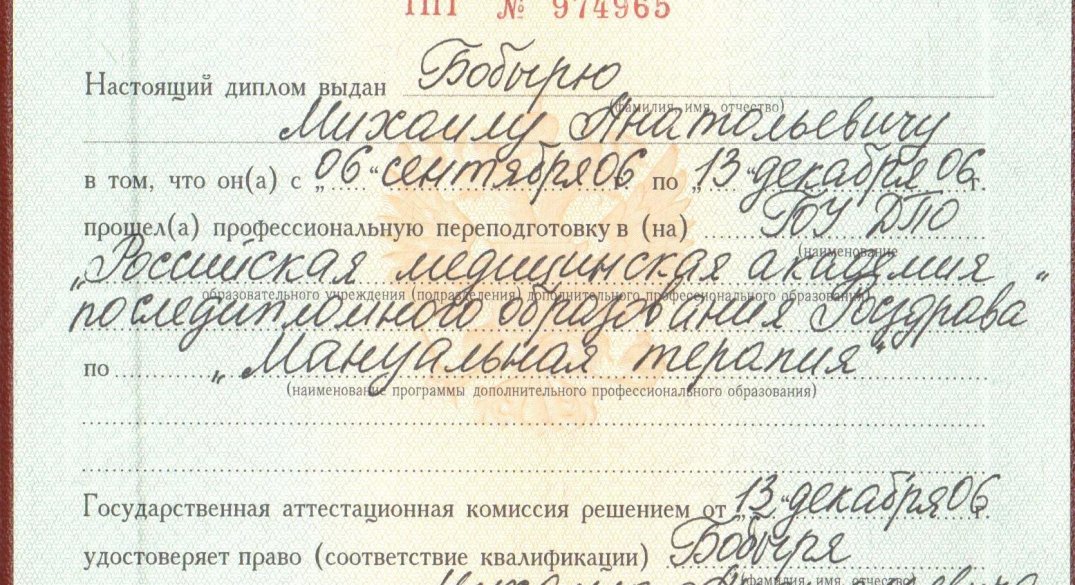 ПП № 974965
Настоящий диплом выдан Бобырю
(фамилия, имя, отчество)
Михаилу Анатольевичу
в том, что он(а) с „06“ сентября 06 по „13“ декабря 06 г.
прошел(а) профессиональную переподготовку в (на) ГОУ ДПО
(наименование
„Российская медицинская академия
образовательного учреждения (подразделения) дополнительного профессионального образования)
последипломного образования Росздрава“
по „Мануальная терапия“
(наименование программы дополнительного профессионального образования)
Государственная аттестационная комиссия решением от „13“ декабря 06
удостоверяет право (соответствие квалификации) Бобыря
(фамилия, имя, отчество)